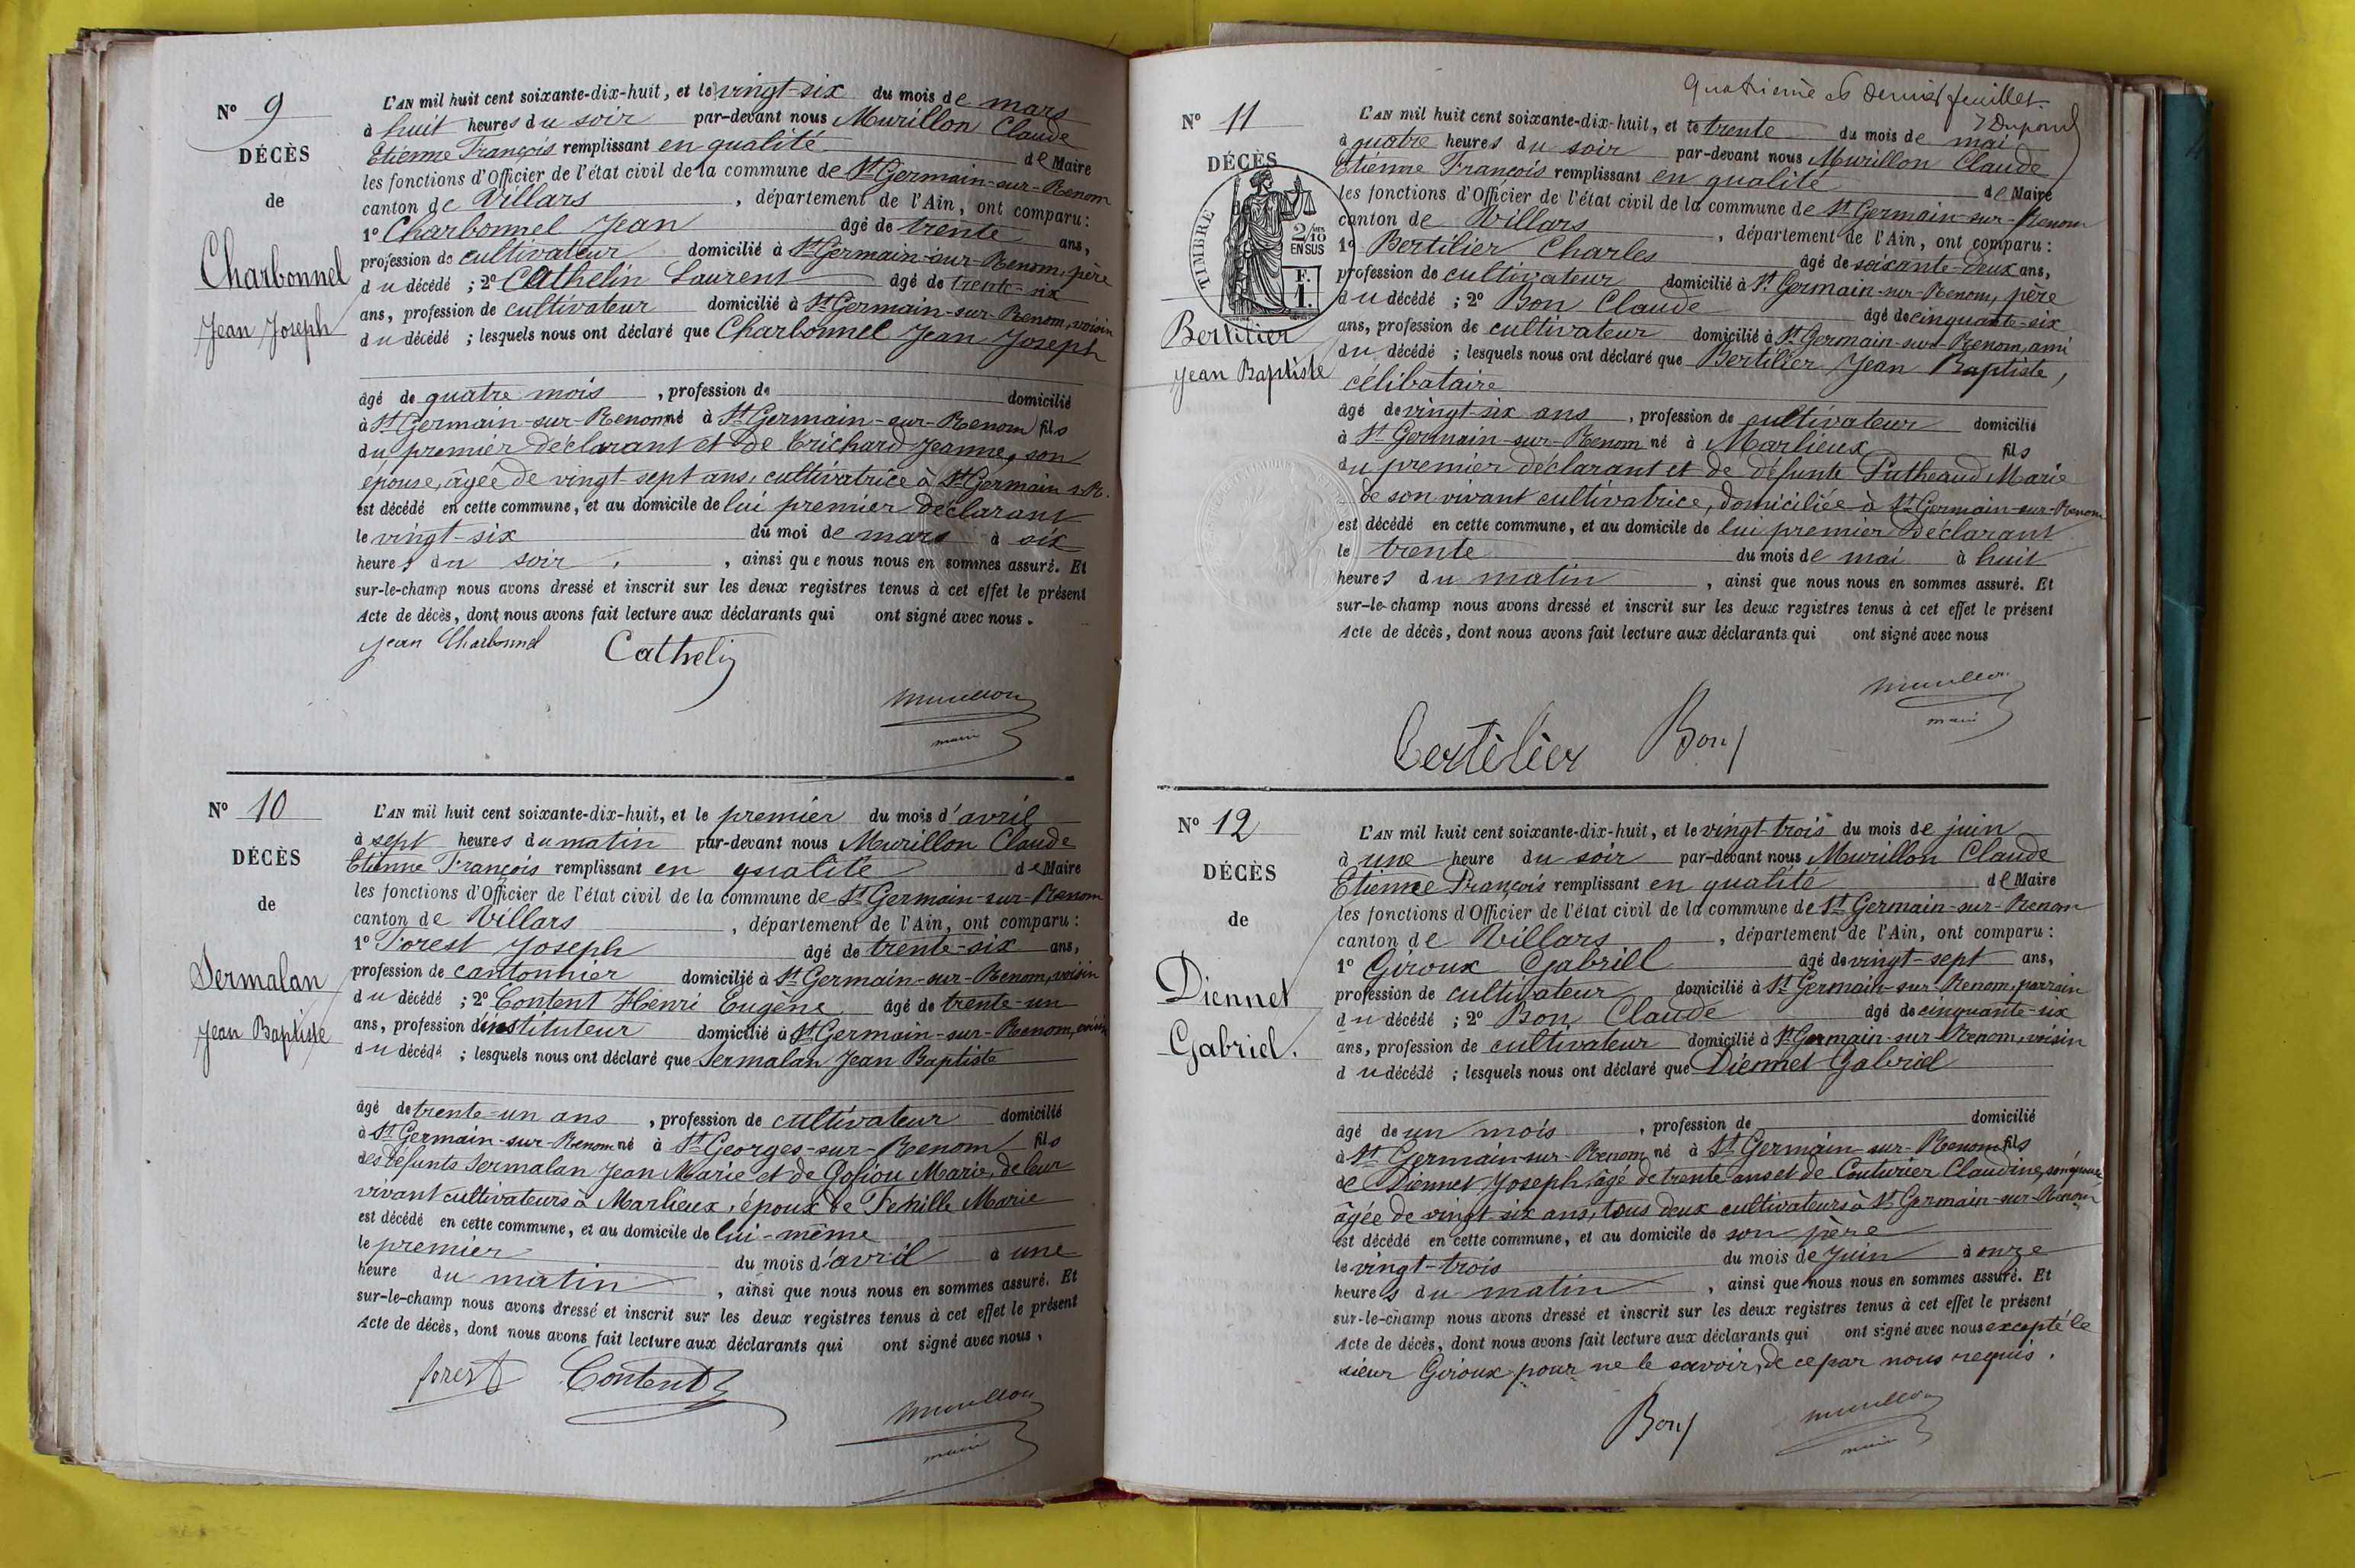 N° 9
DÉCÈS
de
Charbonnel
Jean Joseph
L'AN mil huit cent soixante-dix-huit, et le vingt-six du mois de mars
à huit heures du soir par-devant nous Murillon Claude
Etienne François remplissant en qualité de Maire
les fonctions d'Officier de l'état civil de la commune de St Germain-sur-Renom
canton de Villars, département de l'Ain, ont comparu :
1° Charbonnel Jean âgé de trente ans,
profession de cultivateur domicilié à St Germain-sur-Renom, père
du décédé ; 2° Cathelin Laurent âgé de trente-six
ans, profession de cultivateur domicilié à St Germain-sur-Renom, voisin
du décédé ; lesquels nous ont déclaré que Charbonnel Jean Joseph
âgé de quatre mois, profession de domicilié
à St Germain-sur-Renom né à St Germain-sur-Renom fils
du premier déclarant et de Trichard Jeanne, son
épouse, âgée de vingt-sept ans, cultivatrice à St Germain s. R.
est décédé en cette commune, et au domicile de lui premier déclarant
le vingt-six du moi de mars à six
heures du soir, ainsi que nous nous en sommes assuré. Et
sur-le-champ nous avons dressé et inscrit sur les deux registres tenus à cet effet le présent
Acte de décès, dont nous avons fait lecture aux déclarants qui ont signé avec nous.
Jean Charbonnel Cathelin
Murillon
maire
N° 10
DÉCÈS
de
Sermalan
Jean Baptiste
L'AN mil huit cent soixante-dix-huit, et le premier du mois d'avril
à sept heures du matin par-devant nous Murillon Claude
Etienne François remplissant en qualité de Maire
les fonctions d'Officier de l'état civil de la commune de St Germain-sur-Renom
canton de Villars, département de l'Ain, ont comparu :
1° Forest Joseph âgé de trente-six ans,
profession de cantonnier domicilié à St Germain-sur-Renom, voisin
du décédé ; 2° Content Henri Eugène âgé de trente-un
ans, profession d'instituteur domicilié à St Germain-sur-Renom, voisin
du décédé ; lesquels nous ont déclaré que Sermalan Jean Baptiste
âgé de trente-un ans, profession de cultivateur domicilié
à St Germain-sur-Renom né à St Georges-sur-Renom fils
des défunts Sermalan Jean Marie et de Marie, de leur
vivant cultivateurs à Marlieux, époux de Marie
est décédé en cette commune, et au domicile de lui-même
le premier du mois d'avril à une
heure du matin, ainsi que nous nous en sommes assuré. Et
sur-le-champ nous avons dressé et inscrit sur les deux registres tenus à cet effet le présent
Acte de décès, dont nous avons fait lecture aux déclarants qui ont signé avec nous.
forest Content
Murillon
maire
quatrième et dernier feuillet.
Dupond
N° 11
DÉCÈS
TIMBRE
2/10
EN SUS
F.
1.
Bertilier
Jean Baptiste
L'AN mil huit cent soixante-dix-huit, et le trente du mois de mai
à quatre heures du soir par-devant nous Murillon Claude
Etienne François remplissant en qualité de Maire
les fonctions d'Officier de l'état civil de la commune de St Germain-sur-Renom
canton de Villars, département de l'Ain, ont comparu :
1° Bertilier Charles âgé de soixante-deux ans,
profession de cultivateur domicilié à St Germain-sur-Renom, père
du décédé ; 2° Bon Claude âgé de cinquante-six
ans, profession de cultivateur domicilié à St Germain-sur-Renom, ami
du décédé ; lesquels nous ont déclaré que Bertilier Jean Baptiste,
célibataire
âgé de vingt-six ans, profession de cultivateur domicilié
à St Germain-sur-Renom né à Marlieux fils
du premier déclarant et de défunte Putheaud Marie
de son vivant cultivatrice, domiciliée à St Germain-sur-Renom
est décédé en cette commune, et au domicile de lui premier déclarant
le trente du mois de mai à huit
heures du matin, ainsi que nous nous en sommes assuré. Et
sur-le-champ nous avons dressé et inscrit sur les deux registres tenus à cet effet le présent
Acte de décès, dont nous avons fait lecture aux déclarants qui ont signé avec nous
Murillon
maire
Bertilier Bon
N° 12
DÉCÈS
de
Diennet
Gabriel.
L'AN mil huit cent soixante-dix-huit, et le vingt-trois du mois de juin
à une heure du soir par-devant nous Murillon Claude
Etienne François remplissant en qualité de Maire
les fonctions d'Officier de l'état civil de la commune de St Germain-sur-Renom
canton de Villars, département de l'Ain, ont comparu :
1° Giroux Gabriel âgé de vingt-sept ans,
profession de cultivateur domicilié à St Germain-sur-Renom, parrain
du décédé ; 2° Bon Claude âgé de cinquante-six
ans, profession de cultivateur domicilié à St Germain-sur-Renom, voisin
du décédé ; lesquels nous ont déclaré que Diennet Gabriel
âgé de un mois, profession de domicilié
à St Germain-sur-Renom né à St Germain-sur-Renom fils
de Diennet Joseph âgé de trente ans et de Couturier Claudine, son épouse
âgée de vingt-six ans, tous deux cultivateurs à St Germain-sur-Renom
est décédé en cette commune, et au domicile de son père
le vingt-trois du mois de juin à onze
heures du matin, ainsi que nous nous en sommes assuré. Et
sur-le-champ nous avons dressé et inscrit sur les deux registres tenus à cet effet le présent
Acte de décès, dont nous avons fait lecture aux déclarants qui ont signé avec nous excepté le
sieur Giroux pour ne le savoir, de ce par nous requis.
Bon Murillon
maire